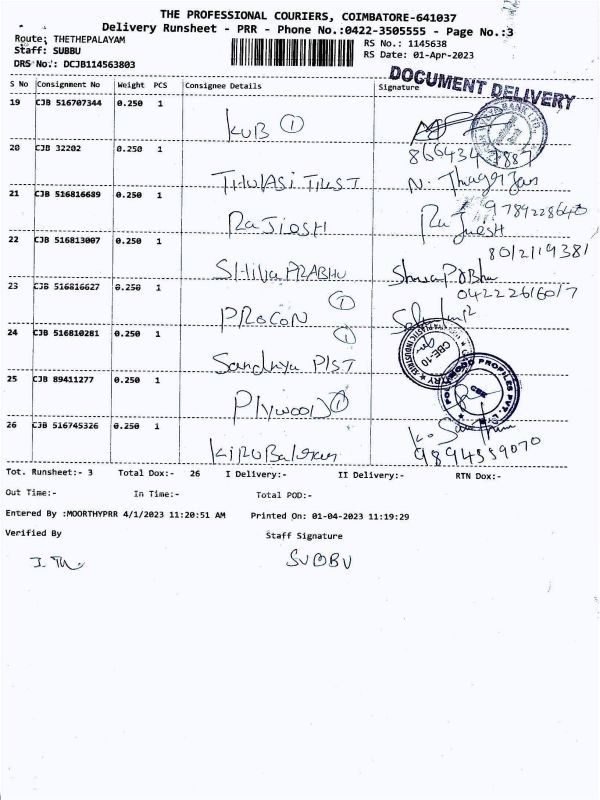 THE PROFESSIONAL COURIERS, COIMBATORE-641037
Delivery Runsheet - PRR - Phone No.:0422-3505555 - Page No.:3
Route: THETHEPALAYAM RS No.: 1145638
Staff: SUBBU RS Date: 01-Apr-2023
DRS No.: DCJB114563803
DOCUMENT DELIVERY
S No Consignment No Weight PCS Consignee Details Signature
19 CJB 516707344 0.250 1
KUB 1
20 CJB 32202 0.250 1
THULASI TRUST
21 CJB 516816689 0.250 1
9789228640
RAJIOSH
22 CJB 516813007 0.250 1
8012119381
SHIVA PRABHU
23 CJB 516816627 0.250 1
04222616017
PROCON 1
24 CJB 516810281 0.250 1
Sandhya PIST 1
CBE-10
25 CJB 89411277 0.250 1
Plywood 1
CBE
26 CJB 516745326 0.250 1
KIRUBAlaran
Tot. Runsheet:- 3 Total Dox:- 26 I Delivery:- II Delivery:- RTN Dox:-
Out Time:- In Time:- Total POD:-
Entered By :MOORTHYPRR 4/1/2023 11:20:51 AM Printed On: 01-04-2023 11:19:29
Verified By Staff Signature
SUBBU